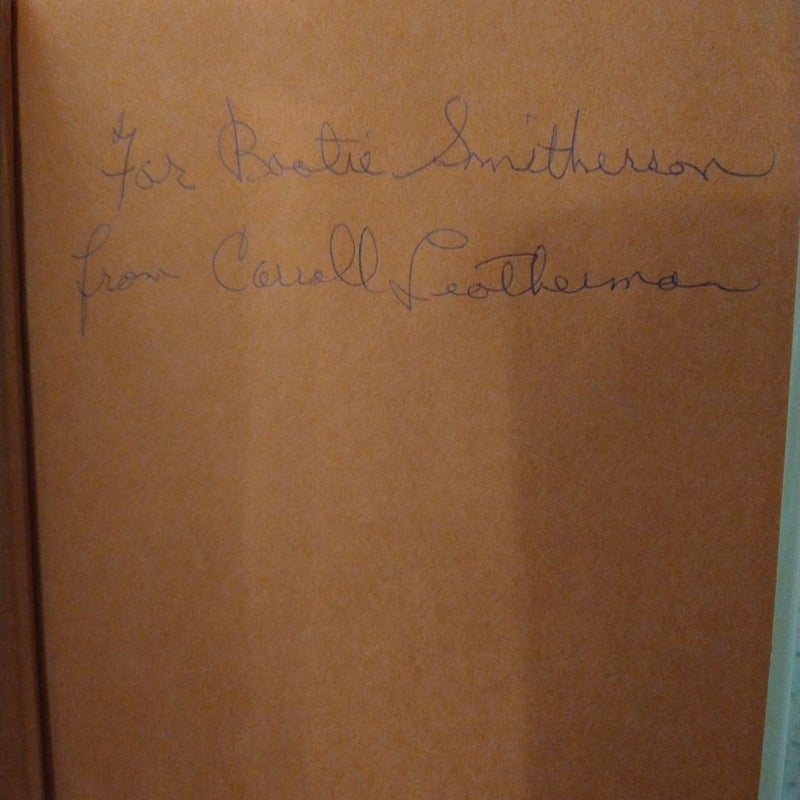 For Bootie Smitherson
from Carroll Leatherman